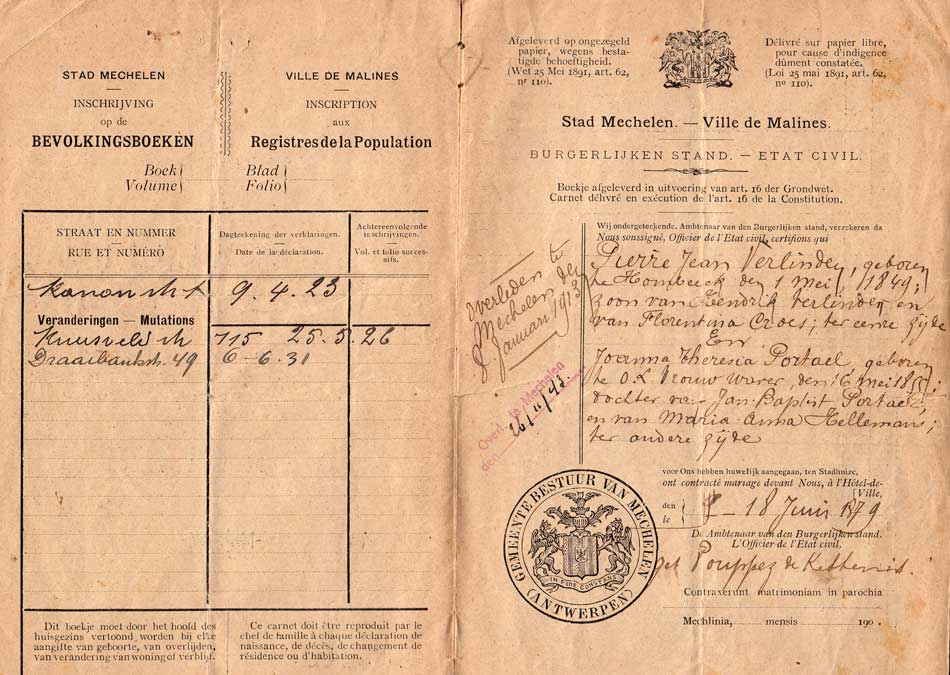 STAD MECHELEN
INSCHRIJVING
op de
BEVOLKINGSBOEKEN
VILLE DE MALINES
INSCRIPTION
aux
Registres de la Population
Boek
Volume
Blad
Folio
STRAAT EN NUMMER
RUE ET NUMÉRO
Dagteekening der verklaringen.
Date de la déclaration.
Achtereenvolgende inschrijvingen.
Vol. et folio successifs.
9.4.23
Veranderingen — Mutations
115 25.5.26
Draaibankstr. 49 6-6-31
Dit boekje moet door het hoofd des
huisgezins vertoond worden bij elke
aangifte van geboorte, van overlijden,
van verandering van woning of verblijf.
Ce carnet doit être reproduit par le
chef de famille à chaque déclaration de
naissance, de décès, de changement de
résidence ou d'habitation.
Afgeleverd op ongezegeld
papier, wegens besta-
tigde behoeftigheid.
(Wet 25 Mei 1891, art. 62,
nr 110).
Délivré sur papier libre,
pour cause d'indigence
dûment constatée.
(Loi 25 mai 1891, art. 62,
no 110).
Stad Mechelen. — Ville de Malines.
BURGERLIJKEN STAND. — ETAT CIVIL.
Boekje afgeleverd in uitvoering van art. 16 der Grondwet.
Carnet délivré en exécution de l'art. 16 de la Constitution.
Wij ondergeteekende. Ambtenaar van den Burgerlijken stand, verzekeren da
Nous soussigné, Officier de l'Etat civil, certifions qui
Pierre Jean Verlinden, geboren
te Hombeeck den 1 Mei 1849;
zoon van Hendrik Verlinden en
van Florentina Croes; ter eenre zijde
En
Joanna Theresia Portael geboren
te O.L. Vrouw Waver, den 16 mei
dochter van Jan Baptist Portael
en van Maria Anna Hellemans;
ter andere zijde
Overleden te
Mechelen den
8 Januari 1913
Overl. te Mechelen
den 26/11/43
voor Ons hebben huwelijk aangegaan, ten Stadhuize,
ont contracté mariage devant Nous, à l'Hôtel-de-
Ville,
den
le
18 Juni 1879
De Ambtenaar van den Burgerlijken stand.
L'Officier de l'Etat civil,
get Pouppez de Kettenis.
Contraxerunt matrimoniam in parochia
Mechlinia, mensis 190 .
GEMEENTEBESTUUR VAN MECHELEN
IN FIDE CONSTANS
(ANTWERPEN)